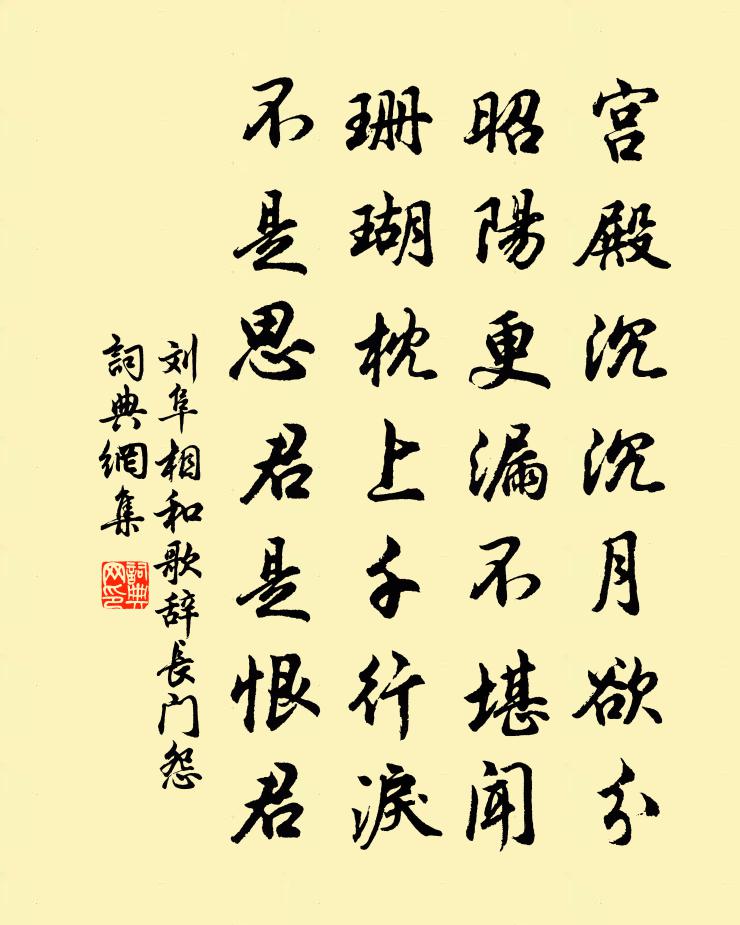 宫殿沉沉月欲分
昭陽更漏不堪聞
珊瑚枕上千行淚
不是思君是恨君
刘阜相和歌辞長门怨
詞典網集
詞典
网印